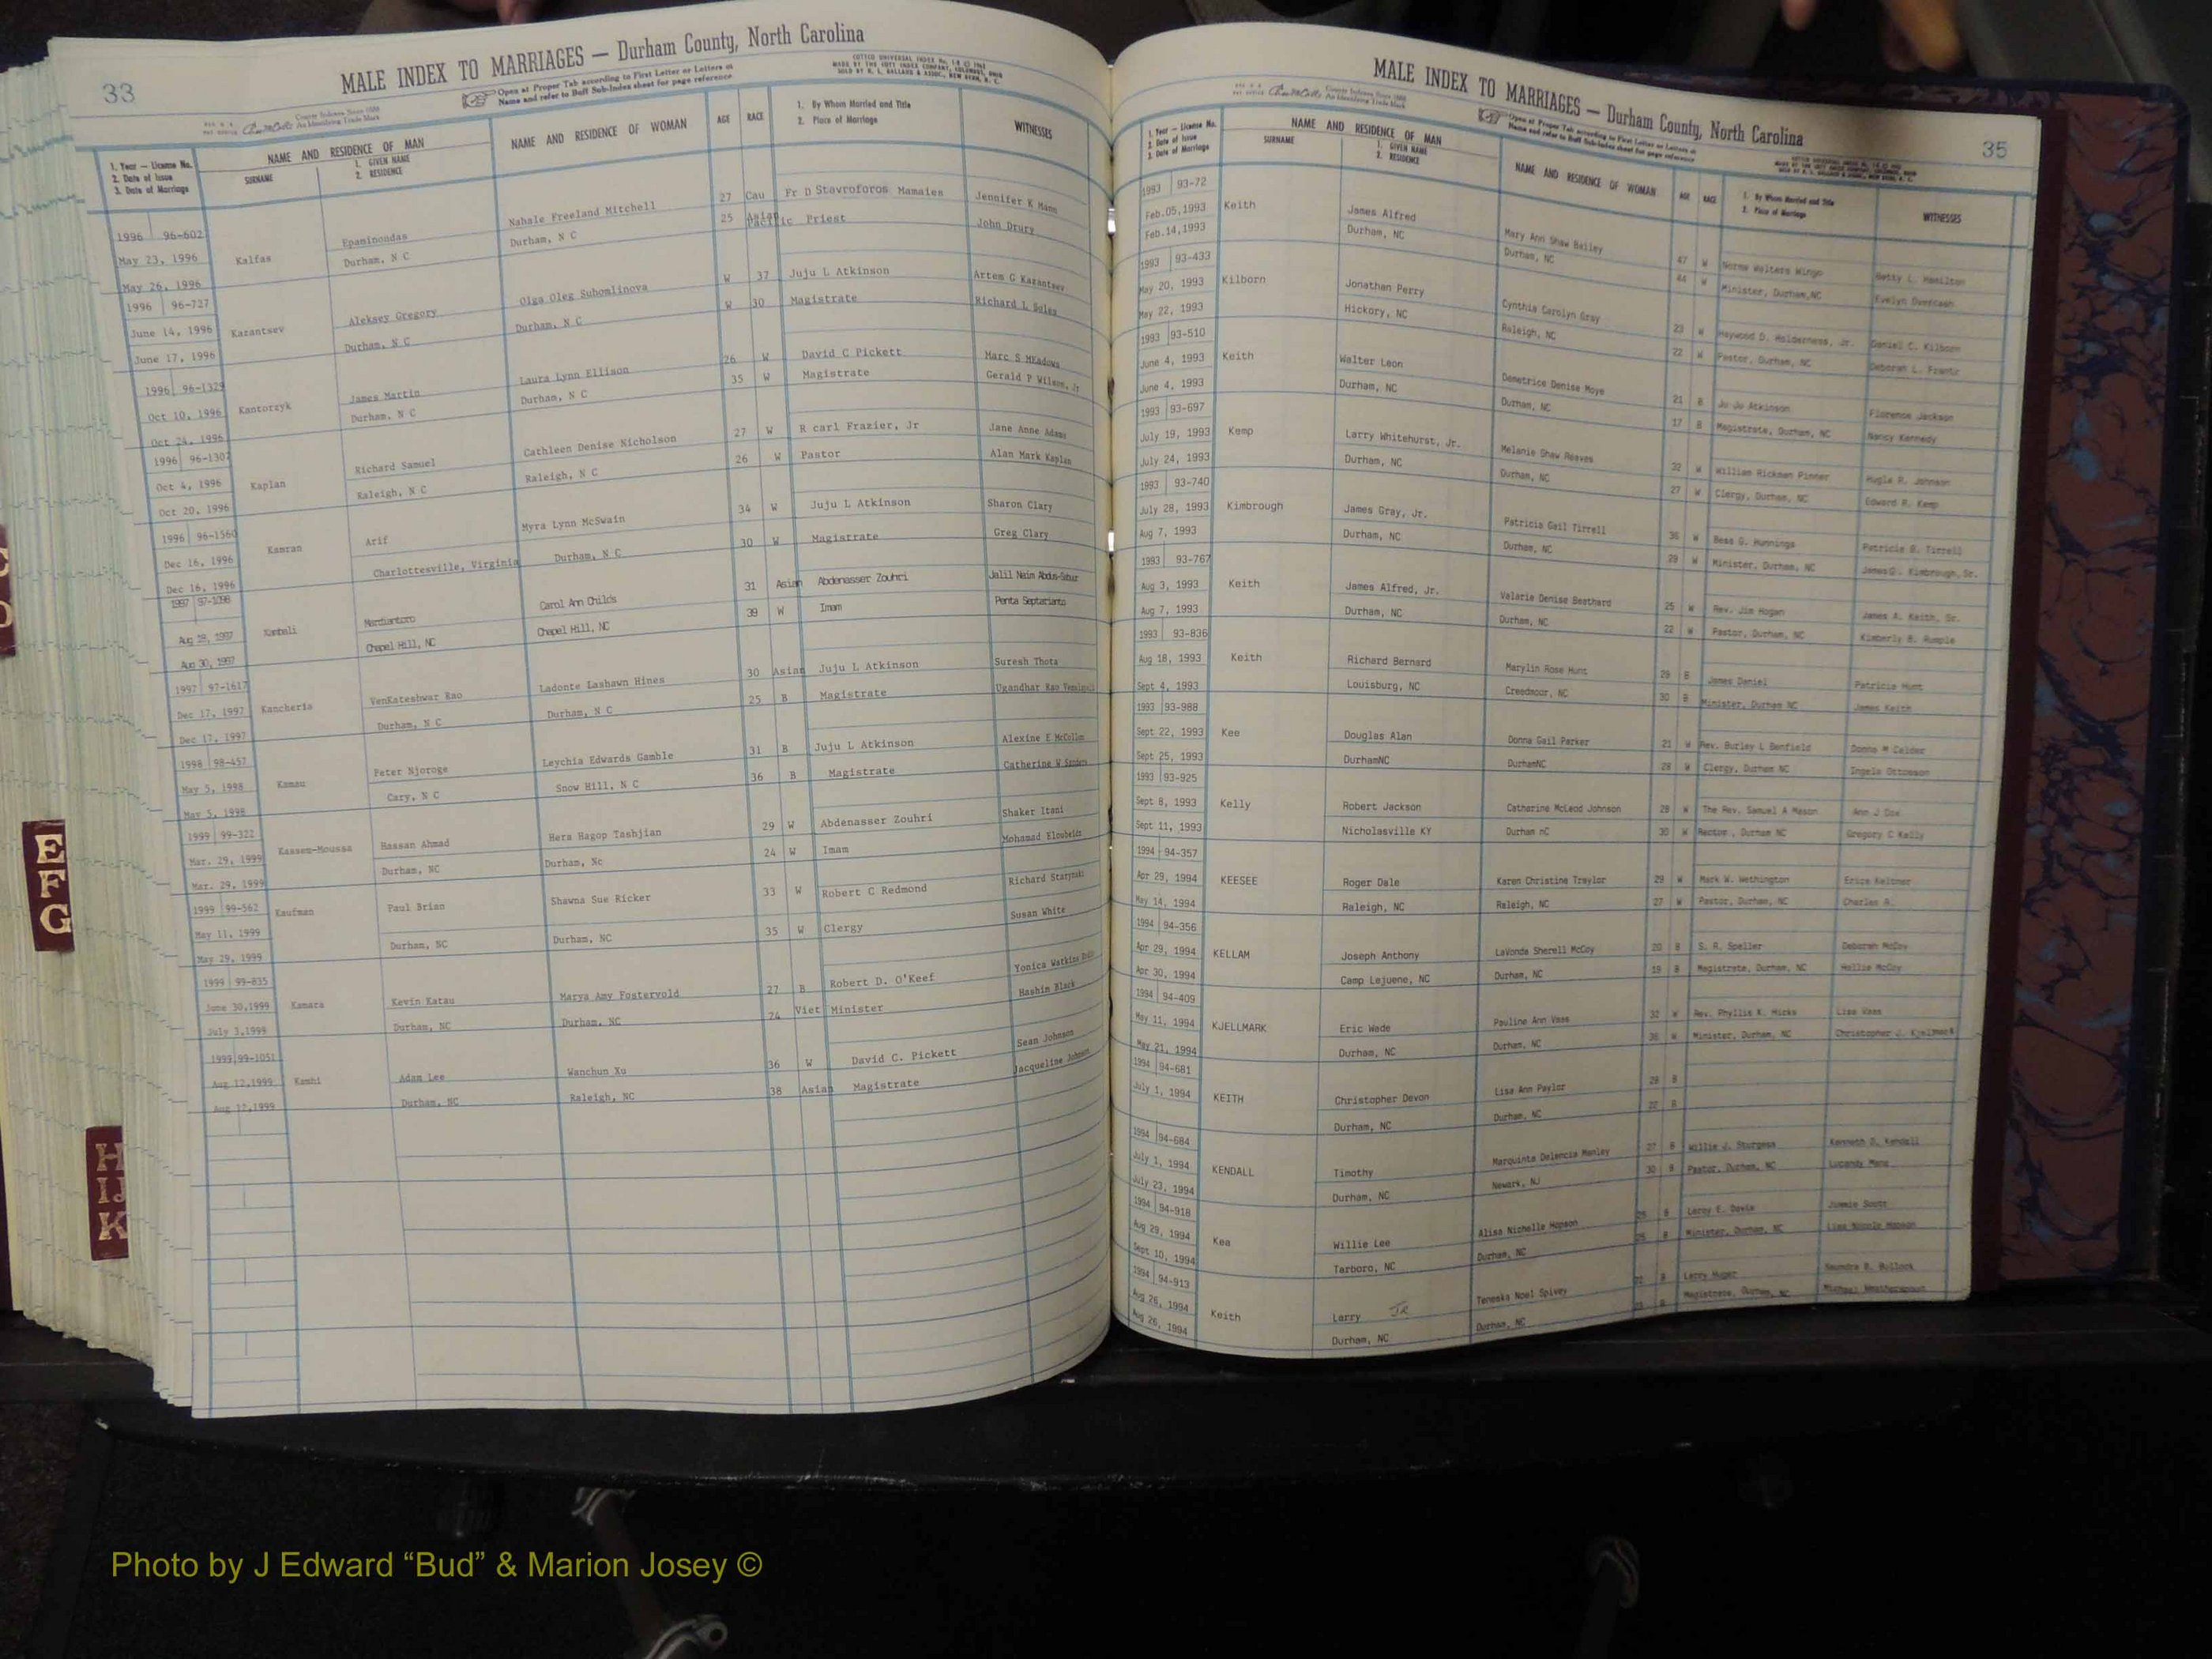 33
MALE INDEX TO MARRIAGES — Durham County, North Carolina
Open at Proper Tab according to First Letter or Letters of
Name and refer to Buff Sub-Index sheet for page reference
COTTCO UNIVERSAL INDEX
MADE BY THE COTT INDEX COMPANY, COLUMBUS, OHIO
County Indexes Since 1888
An Identifying Trade Mark
1. Year — License No.
2. Date of Issue
3. Date of Marriage
NAME AND RESIDENCE OF MAN
SURNAME
1. GIVEN NAME
2. RESIDENCE
NAME AND RESIDENCE OF WOMAN
AGE
RACE
1. By Whom Married and Title
2. Place of Marriage
WITNESSES
1996 96-602 Kalfas Epaminondas Nahale Freeland Mitchell 27 Cau Fr D Stavroforos Mamaies Jennifer K Mann
May 23, 1996 Durham, N C Durham, N C 25 Asian Pacific Priest John Drury
May 26, 1996
1996 96-727 Kazantsev Aleksey Gregory Olga Oleg Suhomlinova W 37 Juju L Atkinson Artem G Kazantsev
June 14, 1996 Durham, N C Durham, N C W 30 Magistrate Richard L Sules
June 17, 1996
1996 96-1329 Kantorzyk James Martin Laura Lynn Ellison 26 W David C Pickett Marc S MEadows
Oct 10, 1996 Durham, N C Durham, N C 35 W Magistrate Gerald P Wilson, Jr
Oct 24, 1996
1996 96-1302 Kaplan Richard Samuel Cathleen Denise Nicholson 27 W R carl Frazier, Jr Jane Anne Adams
Oct 4, 1996 Raleigh, N C Raleigh, N C 26 W Pastor Alan Mark Kaplan
Oct 20, 1996
1996 96-1560 Kamran Arif Myra Lynn McSwain 34 W Juju L Atkinson Sharon Clary
Dec 16, 1996 Charlottesville, Virginia Durham, N C 30 W Magistrate Greg Clary
Dec 16, 1996
1997 97-1098 Kambali Mardiantoro Carol Ann Childs 31 Asian Abdenasser Zouhri Jalil Naim Abdus-Sabur
Aug 18, 1997 Chapel Hill, NC Chapel Hill, NC 39 W Imam Penta Septarianto
Aug 30, 1997
1997 97-1617 Kancheria VenKateshwar Rao Ladonte Lashawn Hines 30 Asian Juju L Atkinson Suresh Thota
Dec 17, 1997 Durham, N C Durham, N C 25 B Magistrate Ugandhar Rao
Dec 17, 1997
1998 98-457 Kamau Peter Njoroge Leychia Edwards Gamble 31 B Juju L Atkinson Alexine E McCollum
May 5, 1998 Cary, N C Snow Hill, N C 36 B Magistrate Catherine W Sanders
May 5, 1998
1999 99-322 Kassem-Moussa Hassan Ahmad Hera Hagop Tashjian 29 W Abdenasser Zouhri Shaker Itani
Mar. 29, 1999 Durham, NC Durham, Nc 24 W Imam Mohamad
Mar. 29, 1999
1999 99-562 Kaufman Paul Brian Shawna Sue Ricker 33 W Robert C Redmond Richard Starynski
May 11, 1999 Durham, NC Durham, NC 35 W Clergy Susan White
May 29, 1999
1999 99-835 Kamara Kevin Katau Marya Amy Fostervold 27 B Robert D. O'Keef Yonica Watkins
June 30,1999 Durham, NC Durham, NC 24 Viet Minister Hashim Black
July 3,1999
1999 99-1051 Kambi Adam Lee Wanchun Xu 36 W David C. Pickett Sean Johnson
Aug 12,1999 Durham, NC Raleigh, NC 38 Asian Magistrate Jacqueline Johnson
Aug 12,1999
E
F
G
H
IJ
K
MALE INDEX TO MARRIAGES — Durham County, North Carolina
35
Open at Proper Tab according to First Letter or Letters of
Name and refer to Buff Sub-Index sheet for page reference
County Indexes Since 1888
An Identifying Trade Mark
1. Year — License No.
2. Date of Issue
3. Date of Marriage
NAME AND RESIDENCE OF MAN
SURNAME
1. GIVEN NAME
2. RESIDENCE
NAME AND RESIDENCE OF WOMAN
AGE
RACE
1. By Whom Married and Title
2. Place of Marriage
WITNESSES
1993 93-72 Keith James Alfred Mary Ann Shaw Bailey 47 W Norma Walters Wingo Betty L. Hamilton
Feb.05,1993 Durham, NC Durham, NC 44 W Minister, Durham,NC Evelyn Overcash
Feb.14,1993
1993 93-433 Kilborn Jonathan Perry Cynthia Carolyn Gray 23 W Haywood D. Holderness, Jr. Daniel C. Kilborn
May 20, 1993 Hickory, NC Raleigh, NC 22 W Pastor, Durham, NC Deborah L. Frantz
May 22, 1993
1993 93-510 Keith Walter Leon Demetrice Denise Moye 21 B Ju Ju Atkinson Florence Jackson
June 4, 1993 Durham, NC Durham, NC 17 B Magistrate, Durham, NC Nancy Kennedy
June 4, 1993
1993 93-697 Kemp Larry Whitehurst, Jr. Melanie Shaw Reaves 32 W William Rickman Pinner Hugla R. Johnson
July 19, 1993 Durham, NC Durham, NC 27 W Clergy, Durham, NC Edward R. Kemp
July 24, 1993
1993 93-740 Kimbrough James Gray, Jr. Patricia Gail Tirrell 36 W Bess G. Hunnings Patricia B. Tirrell
July 28, 1993 Durham, NC Durham, NC 29 W Minister, Durham, NC James G. Kimbrough, Sr.
Aug 7, 1993
1993 93-767 Keith James Alfred, Jr. Valarie Denise Beathard 25 W Rev. Jim Hogan James A. Keith, Sr.
Aug 3, 1993 Durham, NC Durham, NC 22 W Pastor, Durham, NC Kimberly B. Rumple
Aug 7, 1993
1993 93-836 Keith Richard Bernard Marylin Rose Hunt 29 B James Daniel Patricia Hunt
Aug 18, 1993 Louisburg, NC Creedmoor, NC 30 B Minister, Durham NC James Keith
Sept 4, 1993
1993 93-988 Kee Douglas Alan Donna Gail Parker 21 W Rev. Burley L Benfield Donna M Calder
Sept 22, 1993 DurhamNC DurhamNC 28 W Clergy, Durham NC Ingela Ottosson
Sept 25, 1993
1993 93-925 Kelly Robert Jackson Catharine McLeod Johnson 29 W The Rev. Samuel A Mason Ann J Cox
Sept 8, 1993 Nicholasville KY Durham nC 30 W Rector, Durham NC Gregory C Kelly
Sept 11, 1993
1994 94-357 KEESEE Roger Dale Karen Christine Traylor 29 W Mark W. Wethington Erica Keltner
Apr 29, 1994 Raleigh, NC Raleigh, NC 27 W Pastor, Durham, NC Charles R.
May 14, 1994
1994 94-356 KELLAM Joseph Anthony LaVonda Sherell McCoy 20 B S. R. Speller Deborah McCoy
Apr 29, 1994 Camp Lejuene, NC Durham, NC 19 B Magistrate, Durham, NC Hallie McCoy
Apr 30, 1994
1994 94-409 KJELLMARK Eric Wade Pauline Ann Vass 32 W Rev. Phyllis K. Hicks Lisa Vass
May 11, 1994 Durham, NC Durham, NC 36 W Minister, Durham, NC Christopher J. Kjellmark
May 21, 1994
1994 94-681 KEITH Christopher Devon Lisa Ann Paylor 29 B
July 1, 1994 Durham, NC Durham, NC 22 B
1994 94-684 KENDALL Timothy Marquinta Delencia Manley 27 B Willie J. Sturgess Kenneth D. Kendall
July 1, 1994 Durham, NC Newark, NJ 30 B Pastor, Durham, NC
July 23, 1994
1994 94-918 Kea Willie Lee Alisa Nichelle Hopson B Leroy E. Davis Jimmie Scott
Aug 29, 1994 Tarboro, NC Durham, NC B Minister, Durham, NC Lisa Nicole Hopson
Sept 10, 1994
1994 94-913 Keith Larry JR Teneska Noel Spivey 22 B Larry Hager Saundra R. Bullock
Aug 26, 1994 Durham, NC Durham, NC B Magistrate, Durham, NC Michael Weatherspoon
Aug 26, 1994
Photo by J Edward “Bud” & Marion Josey ©